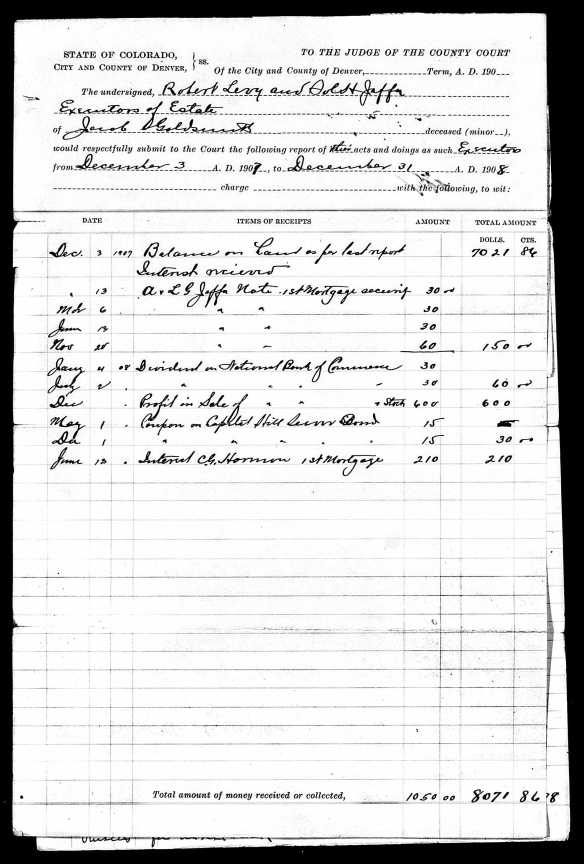 STATE OF COLORADO,
CITY AND COUNTY OF DENVER, } ss.
TO THE JUDGE OF THE COUNTY COURT
Of the City and County of Denver, Term, A. D. 190
The undersigned, Robert Levy and Adolf Jaffa
Executors of Estate
of Jacob Goldsmith deceased (minor ),
would respectfully submit to the Court the following report of their acts and doings as such Executors
from December 3 A. D. 1907, to December 31 A. D. 1908
charge with the following, to wit:
DATE ITEMS OF RECEIPTS AMOUNT TOTAL AMOUNT
DOLLS. CTS.
Dec. 3 1907 Balance on hand as per last report 7021 86
Interest recieved
" 13 A & L G Jaffa Note 1st Mortgage security 30 00
Mch 6 " " 30
June 13 " " 30
Nov 25 " " 60 150 00
Jany 4 08 Dividend on National Bank of Commerce 30
July 2 " " " " 30 60 00
Dec Profit in Sale of " " Stock 600 600
May 1 Coupon on Capitol Hill Sewer Bond 15
Dec 1 " " " " " 15 30 00
June 13 Interest C. G. Harmon 1st Mortgage 210 210
Total amount of money received or collected, 1050 00 8071 86